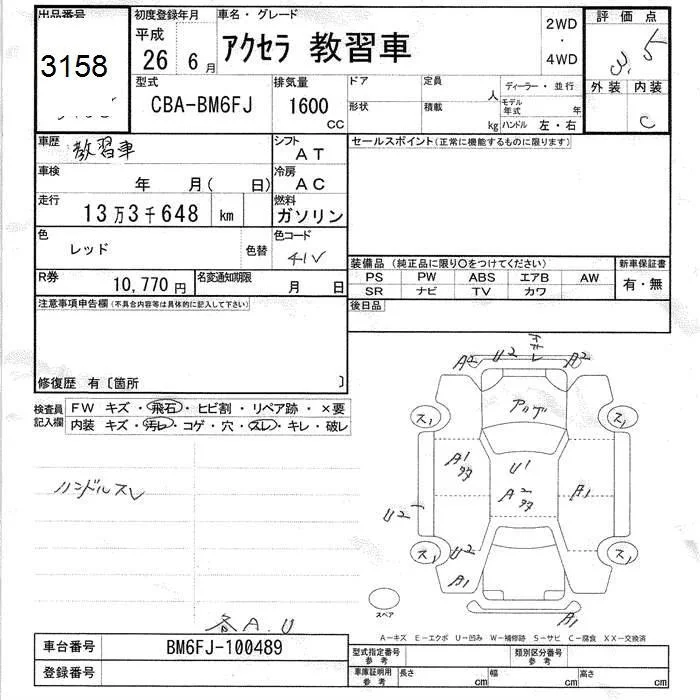 出品番号 初度登録年月 車名・グレード 2WD・4WD 評価点
3158 平成 26 6月 アクセラ 教習車 3.5
外装 内装
C
型式 排気量 ドア 定員 人 ディーラー・並行
CBA-BM6FJ 1600 CC 形状 積載 kg モデル年式 年
ハンドル 左・右
車歴 教習車 シフト AT セールスポイント(正常に機能するものに限ります)
車検 年 月( 日) 冷房 AC
走行 13万3千648 km 燃料 ガソリン
色 レッド 色替 色コード 41V
装備品 (純正品に限り○をつけてください) 新車保証書
PS PW ABS エアB AW 有・無
SR ナビ TV カワ
R券 10,770円 名変通知期限 月 日
後日品
注意事項申告欄(不具合内容等は具体的に記入して下さい)
修復歴 有〔箇所 〕
検査員記入欄 FW キズ・飛石・ヒビ割・リペア跡・×要
内装 キズ・汚レ・コゲ・穴・スレ・キレ・破レ
ハンドルスレ
各A.U
A2 U2 キズ A2
ス1 アカデ ス1
A1 U1
A2 A1
U2
ス1 U2 ス1
A1
スペア A1
A-キズ E-エクボ U-凹み W-補修跡 S-サビ C-腐食 XX-交換済
車台番号 BM6FJ-100489
登録番号
型式指定番号 参考 類別区分番号 参考
車庫証明用 参考 長さ cm 幅 cm 高さ cm